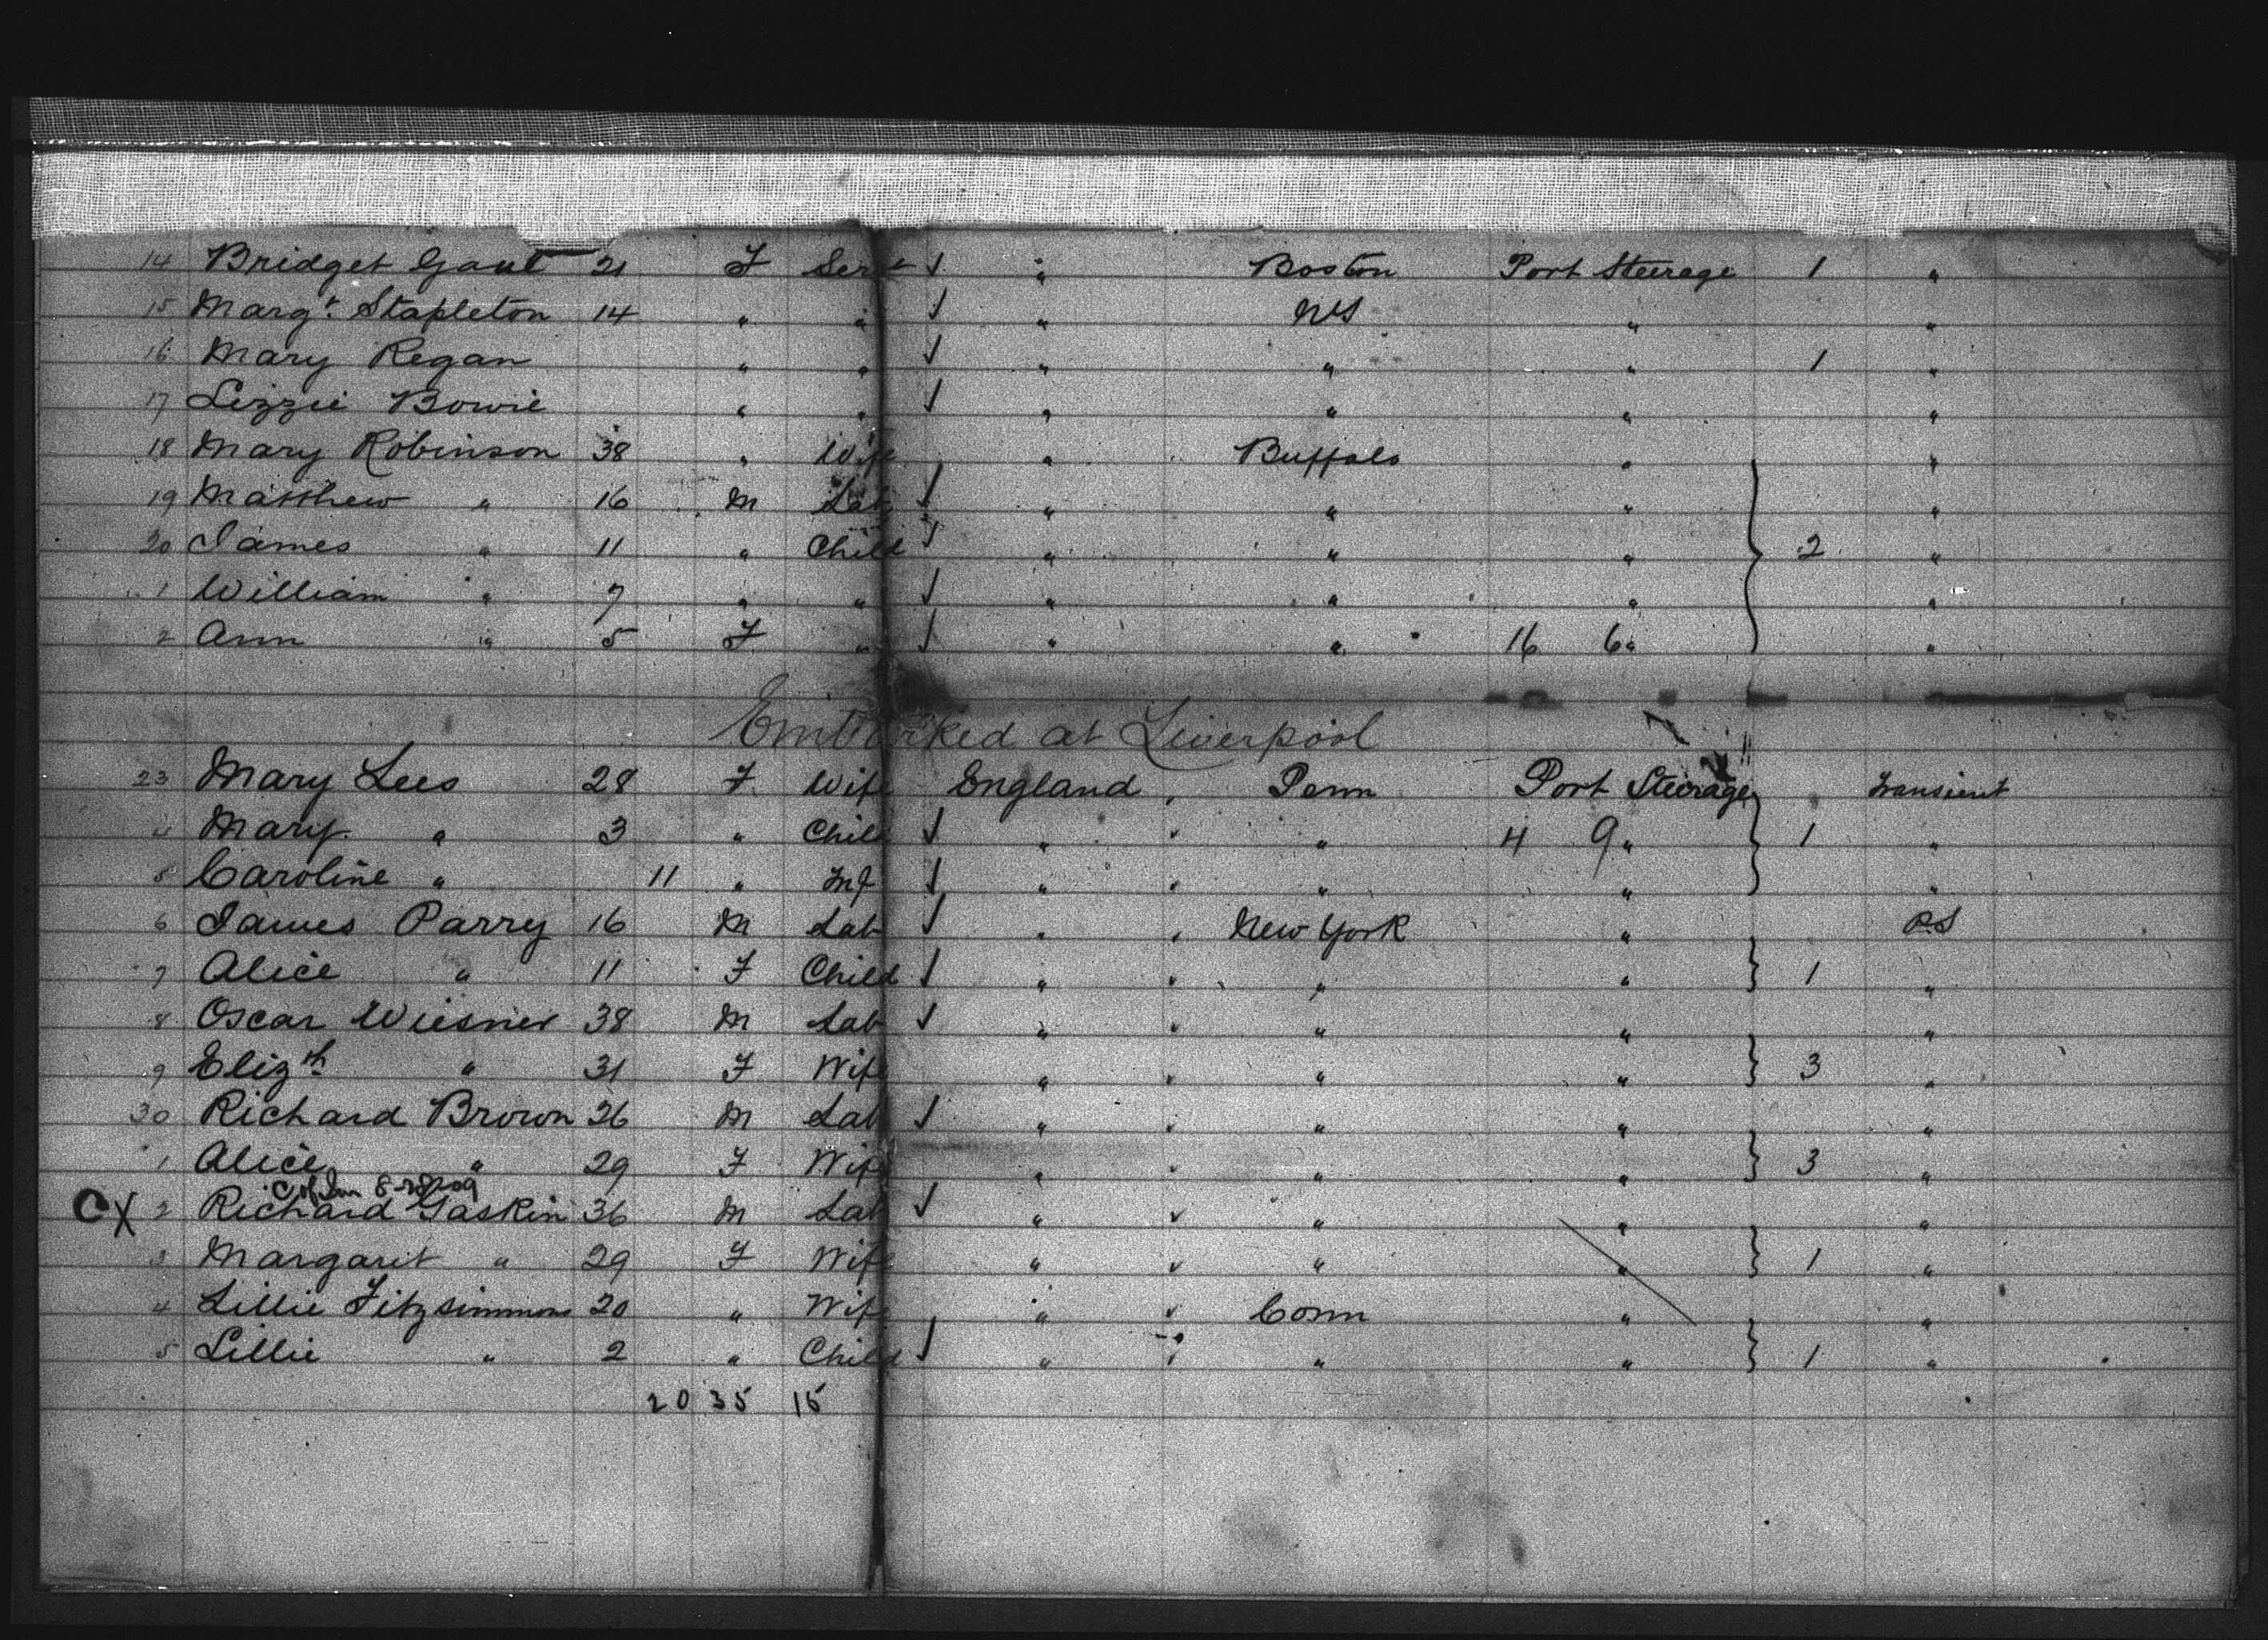 14 Bridget Gaul 21 F Servt √ " Boston Port Steerage 1 "
15 Margt. Stapleton 14 " " √ " NY " "
16 Mary Regan " " √ " " " 1 "
17 Lizzie Bowie " " √ " " " "
18 Mary Robinson 38 " Wife " Buffalo " "
19 Matthew " 16 M Lab √ " " " "
20 James " 11 " Child √ " " " 2 "
1 William " 7 " " √ " " " "
2 Ann " 5 F " √ " " 16 6 " "
Embarked at Liverpool
23 Mary Lees 28 F Wife England " Penn Port Steerage Transient
4 Mary " 3 " Child √ " " " 4 9 " 1 "
5 Caroline " 11 " Inf √ " " " " "
6 James Parry 16 M Lab √ " " New York " PS
7 Alice " 11 F Child √ " " " " 1 "
8 Oscar Wiesner 38 M Lab √ " " " " "
9 Elizth " 31 F Wife " " " " 3 "
30 Richard Brown 26 M Lab √ " " " " "
1 Alice " 29 F Wife " " " " 3 "
C
CX 2 Richard Gaskin 36 M Lab √ " " " " "
3 Margaret " 29 F Wife " " " " 1 "
4 Lillie Fitzsimmons 20 " Wife " " Conn " "
5 Lillie " 2 " Child √ " " " " 1 "
20 35 15